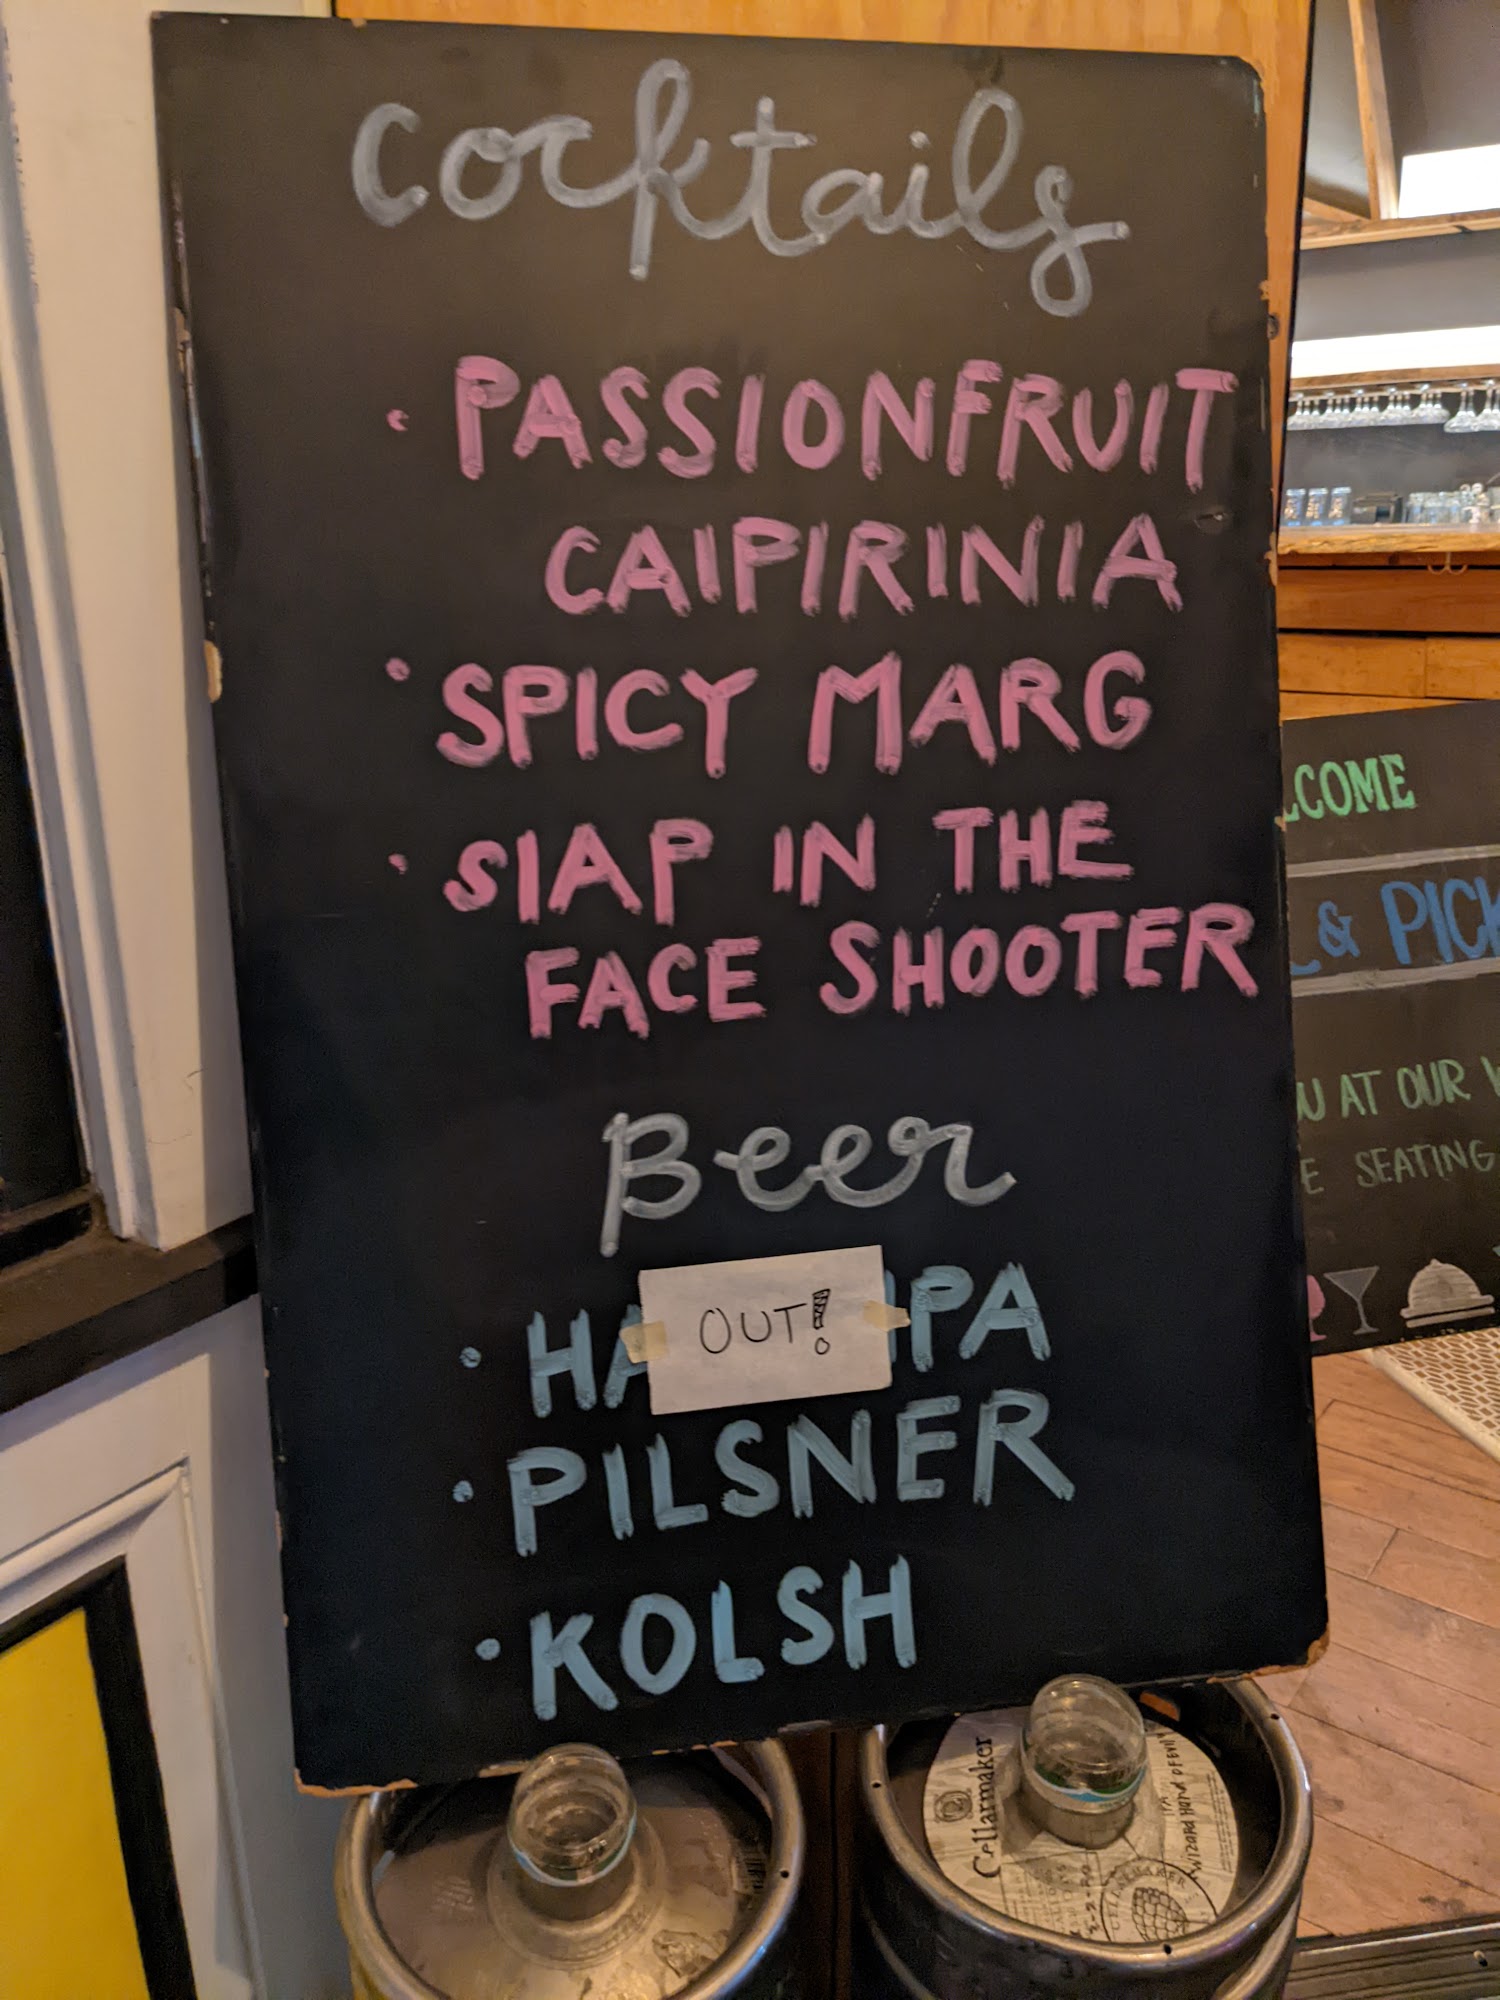 Cocktails
• PASSIONFRUIT
CAIPIRINIA
• SPICY MARG
• SlAP IN THE
FACE SHOOTER
Beer
• HA IPA
OUT!
• PILSNER
• KOLSH
LCOME
& PICK
U AT OUR
E SEATING
Cellarmaker
IPA
Wizard Hand
CELLARMAKER